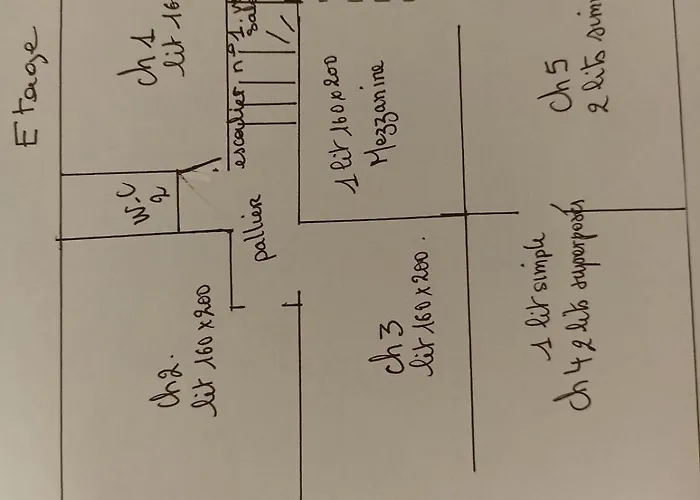 Etage
Ch 1
lit 16
escalier n°1.
W-C
2
pallier
1 lit 160x200
Mezzanine
Ch 5
2 lits sim
Ch2.
lit 160x200
Ch 3
lit 160x200.
1 lit simple
Ch 4 2 lits superposés